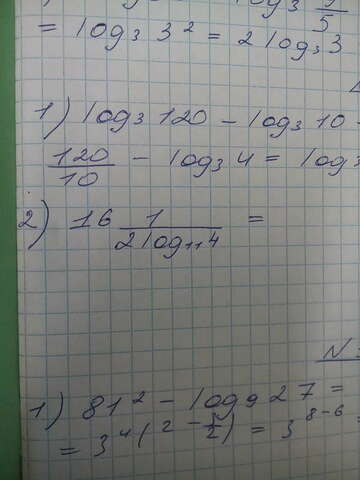 = log₃ 3² = 2 log₃ 3
1) log₃ 120 − log₃ 10 −
120/10 − log₃ 4 = log₃
2) 16 1/(2 log₁₁ 4) =
N
1) 81² − log₉ 27 =
= 3⁴(2 − 3/2) = 3⁸⁻⁶